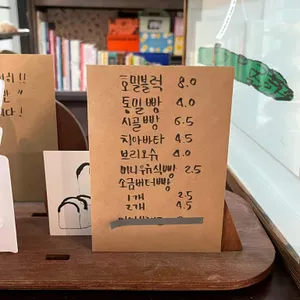 호밀블럭 8.0
통밀빵 4.0
시골빵 6.5
치아바타 4.5
브리오슈 4.0
미니우유식빵 2.5
소금버터빵
1개 2.5
2개 4.5